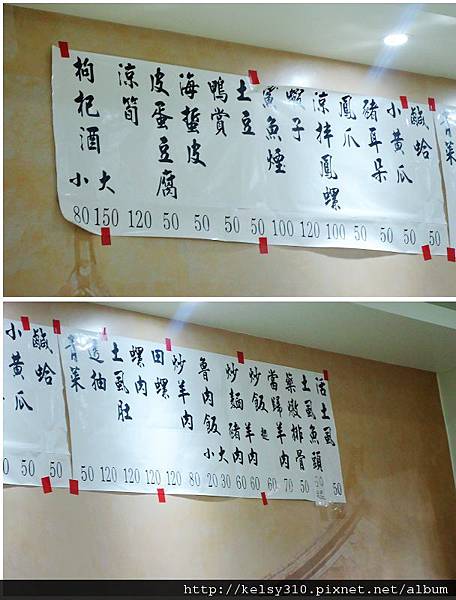 鹹蛤
小黃瓜
豬耳朵
鳳爪
涼拌鳳螺
蝦子
鯊魚煙
土豆
鴨賞
海蜇皮
皮蛋豆腐
涼筍
枸杞酒 小 大
80 150 120 50 50 50 50 100 120 100 50 50 50 50
活土虱
土虱魚頭
藥燉排骨
當歸羊肉
炒飯羊肉
炒麵豬肉
魯肉飯 小 大
炒羊肉
田螺
螺肉
土虱肚
透抽
青菜
鹹蛤
小黃瓜
0 50 50 50 120 120 120 120 80 20 30 60 60 60 70 50 50
http://kelsy310.pixnet.net/album